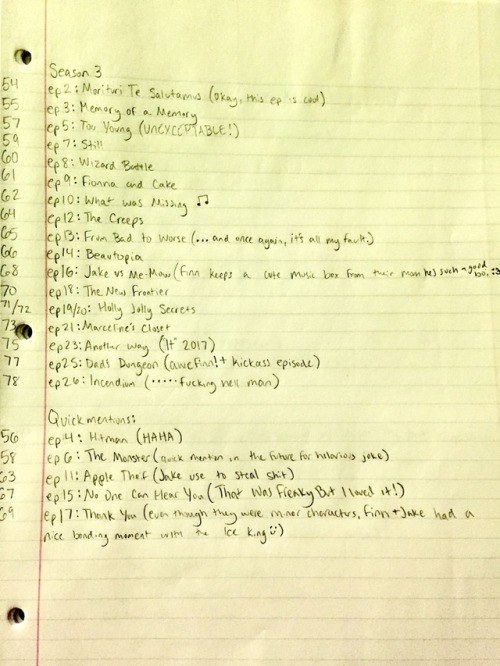 Season 3
54 ep 2: Morituri Te Salutamus (okay, this ep is cool)
55 ep 3: Memory of a Memory
57 ep 5: Too Young (UNEXCEPTABLE!)
59 ep 7: Still
60 ep 8: Wizard Battle
61 ep 9: Fionna and Cake
62 ep 10: What was Missing ♫
64 ep 12: The Creeps
65 ep 13: From Bad to Worse (... and once again, it's all my fault.)
66 ep 14: Beautopia
68 ep 16: Jake vs Me-Mow (Finn keeps a cute music box from their mom he's such a good boi :3
70 ep 18: The New Frontier
71/72 ep 19/20: Holly Jolly Secrets
73 ep 21: Marceline's Closet
75 ep 23: Another Way ("It" 2017)
77 ep 25: Dad's Dungeon (awe Finn! + kickass episode)
78 ep 26: Incendium (..... fucking hell man)
Quick mentions:
56 ep 4: Hitman (HAHA)
58 ep 6: The Monster (quick mention in the future for hilarious joke)
63 ep 11: Apple Thief (Jake use to steal shit)
67 ep 15: No One Can Hear You (That Was Freaky But I loved it!)
69 ep 17: Thank You (even though they were minor characters, Finn + Jake had a
nice bonding moment with the Ice King :))